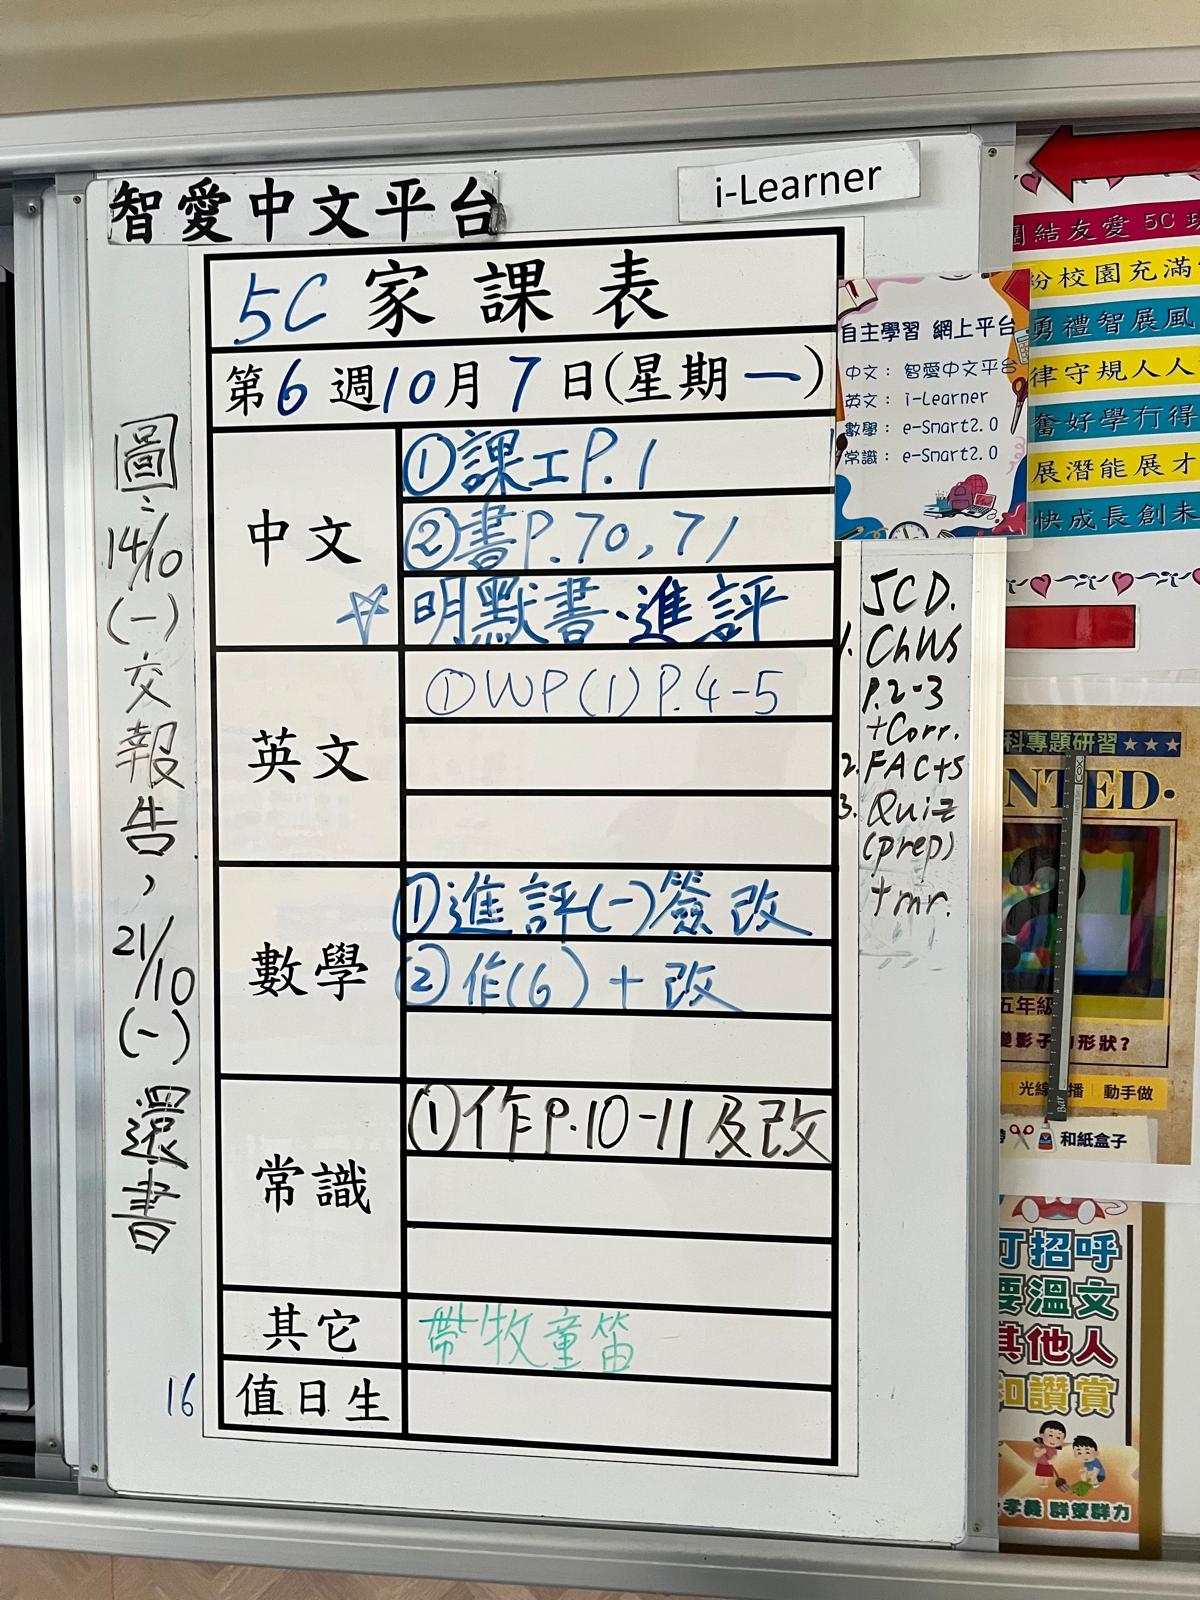 智愛中文平台
i-Learner
5C 家課表
第6週10月7日(星期一)
中文
①課工P.1
②書P.70,71
☆明默書、進評
英文
①WP(1)P.4-5
數學
①進評(一)簽改
②作(6)+改
常識
①作P.10-11及改
其它
帶牧童笛
值日生
16
圖:14/10(一)交報告,21/10(一)還書
自主學習 網上平台
中文: 智愛中文平台
英文: i-Learner
數學: e-Smart2.0
常識: e-Smart2.0
5CD.
1. ChWs
P.2-3
+Corr.
2. FACts
3. Quiz
(prep)
tmr.
結友愛 5C
校園充滿
勇禮智展風
律守規人人
奮好學冇得
展潛能展才
快成長創未
科專題研習★★★
NTED.
?
五年級
形狀?
光線
播
動手做
和紙盒子
招呼
要溫文
其他人
和讚賞
孝義 群策群力